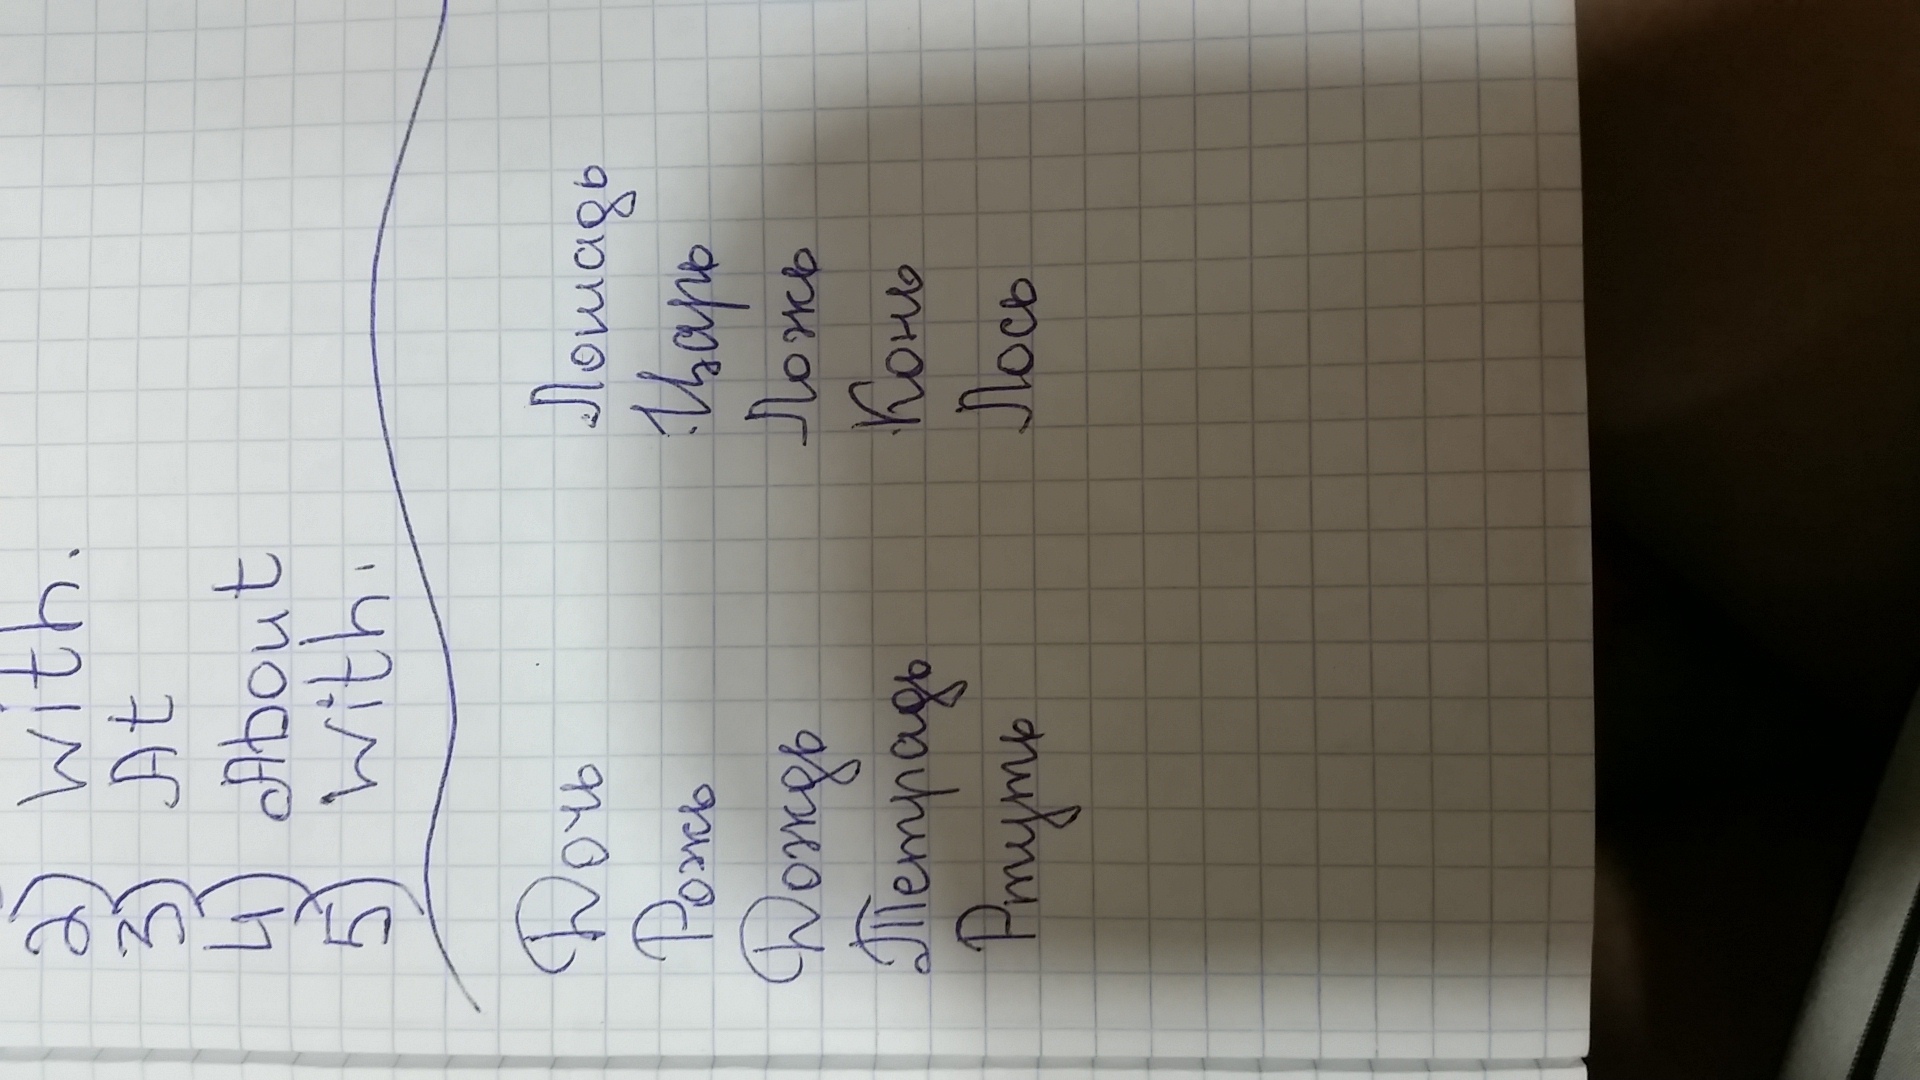 2) with.
3) At
4) About
5) with.
Дочь Лошадь
Рожь Царь
Дождь Ложь
Тетрадь Конь
Ртуть Лось